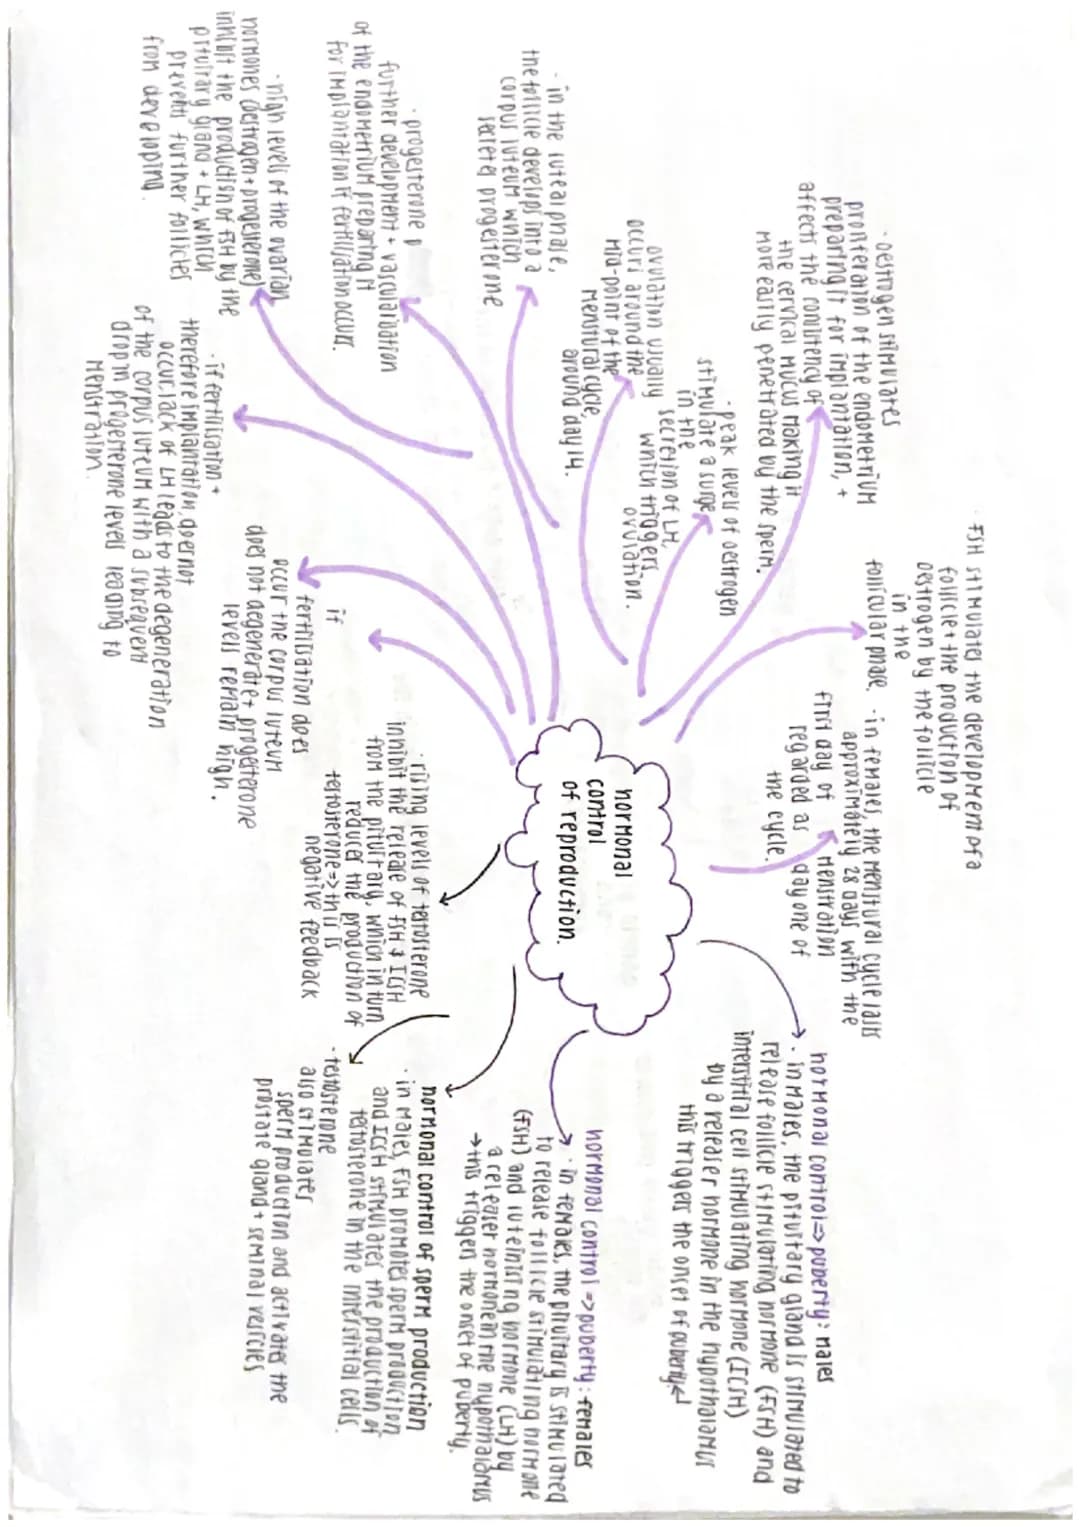 hormonal
control
of reproduction.
hormonal control => puberty: males
· in males, the pituitary gland is stimulated to
release follicle stimulating hormone (FSH) and
interstitial cell stimulating hormone (ICSH)
by a releaser hormone in the hypothalamus
this triggers the onset of puberty
hormonal control => puberty: females
· in females, the pituitary is stimulated
to release follicle stimulating hormone
(FSH) and luteinising hormone (LH) by
a releaser hormone in the hypothalamus
→ this triggers the onset of puberty.
hormonal control of sperm production
· in males FSH promotes sperm production
and ICSH stimulates the production of
testosterone in the interstitial cells.
· testosterone
also stimulates
sperm production and activates the
prostate gland + seminal vesicles
· rising levels of testosterone
inhibit the release of FSH & ICSH
from the pituitary, which in turn
reduces the production of
testosterone => this is
negative feedback
· in females, the menstural cycle lasts
approximately 28 days with the
first day of menstration
regarded as day one of
the cycle.
· FSH stimulates the development of a
follicle + the production of
oestrogen by the follicle
in the
follicular phase.
· oestrogen stimulates
proliferation of the endometrium
preparing it for implantation, +
affects the consistency of
the cervical mucus making it
more easily penetrated by the sperm.
· peak levels of oestrogen
stimulate a surge
in the
secretion of LH,
which triggers
ovulation.
ovulation usually
occurs around the
mid-point of the
menstural cycle,
around day 14.
· in the luteal phase,
the follicle develops into a
corpus luteum which
secretes progesterone
· progesterone p
further development + vascularisation
of the endometrium preparing it
for implantation if fertilisation occurs.
· high levels of the ovarian
hormones (oestrogen + progesterone)
inhibit the production of FSH by the
pituitary gland + LH, which
prevents further follicles
from developing.
· if fertilisation +
therefore implantation does not
occur, lack of LH leads to the degeneration
of the corpus luteum with a subsequent
drop in progesterone levels leading to
menstration.
if
fertilisation does
occur the corpus luteum
does not degenerate + progesterone
levels remain high.